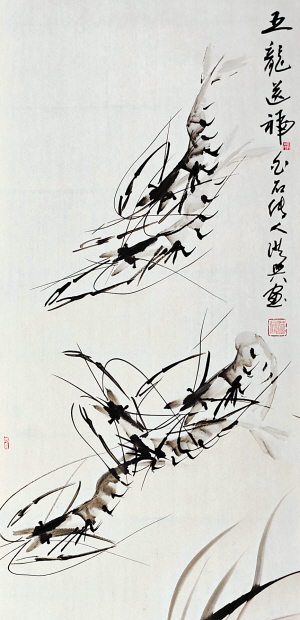 五龍送福
白石傳人洪興畫